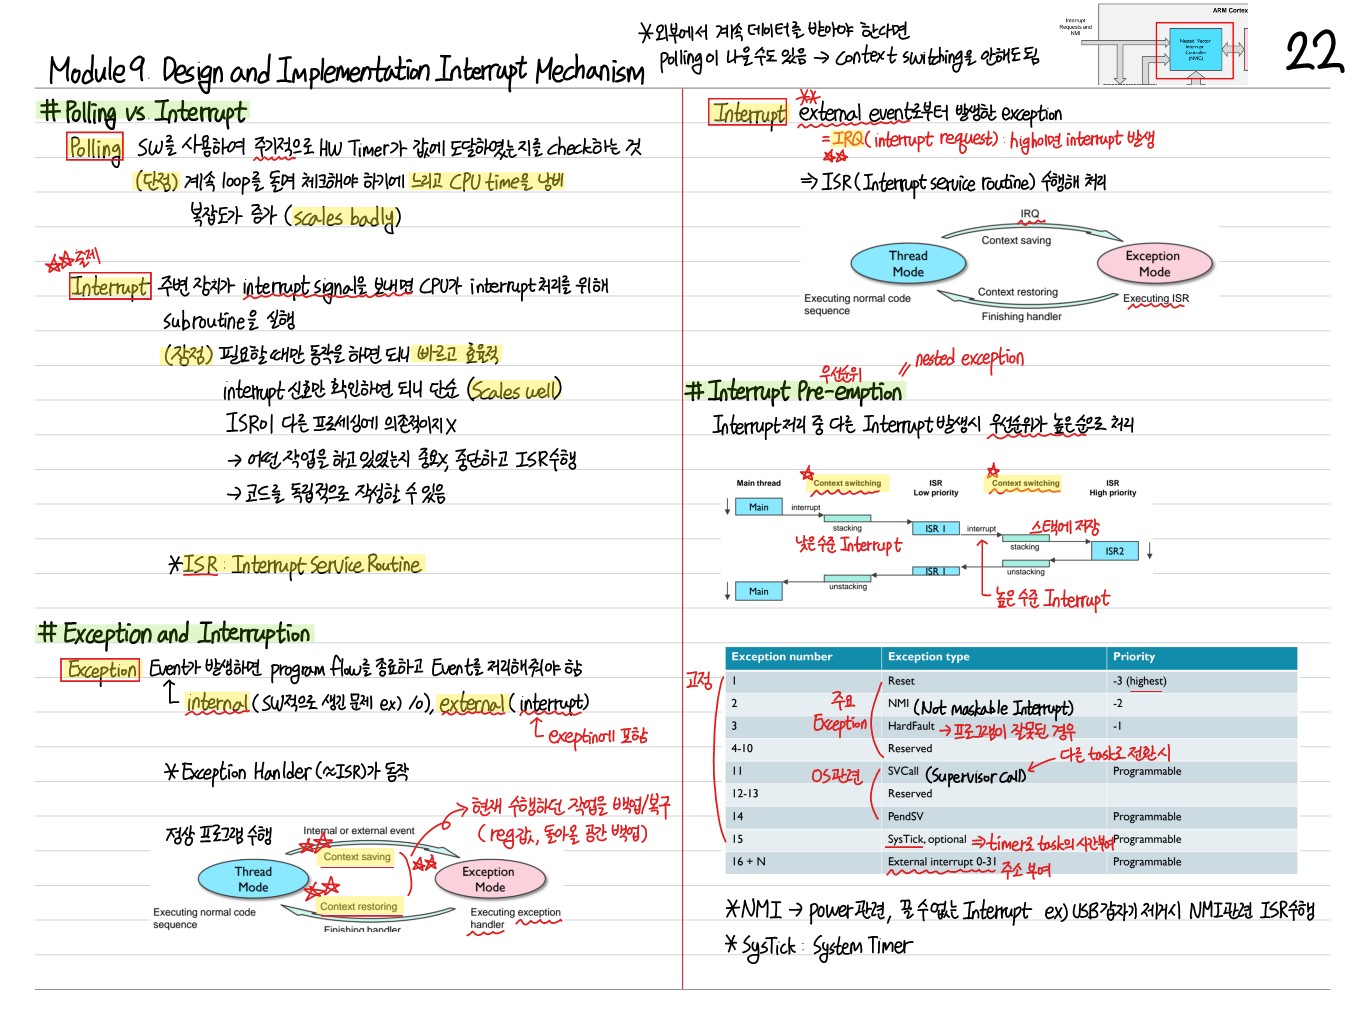 *외부에서 계속 데이터를 받아야 한다면
Polling이 나을수도 있음 → Context switching을 안해도됨
Interrupt
Requests and
NMI
ARM Cortex
Nested Vector
Interrupt
Controller
(NVIC)
22
Module 9. Design and Implementation Interrupt Mechanism
# Polling vs. Interrupt
Polling SW를 사용하여 주기적으로 HW Timer가 값에 도달하였는지를 check하는 것
(단점) 계속 loop를 돌며 체크해야 하기에 느리고 CPU time을 낭비
복잡도가 증가 (scales badly)
☆☆출제
Interrupt 주변 장치가 interrupt signal을 보내면 CPU가 interrupt처리를 위해
subroutine을 실행
(장점) 필요할 때만 동작을 하면 되니 빠르고 효율적
interrupt 신호만 확인하면 되니 단순 (Scales well)
ISR이 다른 프로세싱에 의존적이지 X
→ 어떤 작업을 하고 있었는지 중요X, 중단하고 ISR수행
→ 코드를 독립적으로 작성할 수 있음
*ISR : Interrupt Service Routine
# Exception and Interruption
Exception Event가 발생하면 program flow를 종료하고 Event를 처리해줘야 함
internal (SW적으로 생긴 문제 ex) /0), external (interrupt)
exeptino에 포함
*Exception Hanlder (≈ISR)가 동작
→ 현재 수행하던 작업을 백업/복구
(reg값, 돌아올 공간 백업)
정상 프로그램 수행
Internal or external event
Context saving
Thread
Mode
Exception
Mode
Context restoring
Executing normal code
sequence
Finishing handler
Executing exception
handler
Interrupt external event로부터 발생한 exception
= IRQ (interrupt request) : high이면 interrupt 발생
⇒ ISR (Interrupt service routine) 수행해 처리
IRQ
Context saving
Thread
Mode
Exception
Mode
Context restoring
Executing normal code
sequence
Finishing handler
Executing ISR
우선순위
〃 nested exception
# Interrupt Pre-emption
Interrupt처리 중 다른 Interrupt 발생시 우선순위가 높은순으로 처리
Main thread
Context switching
ISR
Low priority
Context switching
ISR
High priority
Main
interrupt
stacking
ISR 1
interrupt
스택에 저장
stacking
ISR2
낮은 수준 Interrupt
unstacking
ISR 1
unstacking
Main
높은 수준 Interrupt
Exception number Exception type Priority
고정
1 Reset -3 (highest)
주요
Exception
2 NMI (Not maskable Interrupt) -2
3 HardFault → 프로그램이 잘못된 경우 -1
4-10 Reserved
다른 task로 전환시
OS관련
11 SVCall (Supervisor call) Programmable
12-13 Reserved
14 PendSV Programmable
15 SysTick, optional ⇒ timer로 task의 시간부여 Programmable
16 + N External interrupt 0-31 주소 부여 Programmable
*NMI → power관련, 끌 수 없는 Interrupt ex) USB갑자기 제거시 NMI관련 ISR수행
* SysTick : System Timer